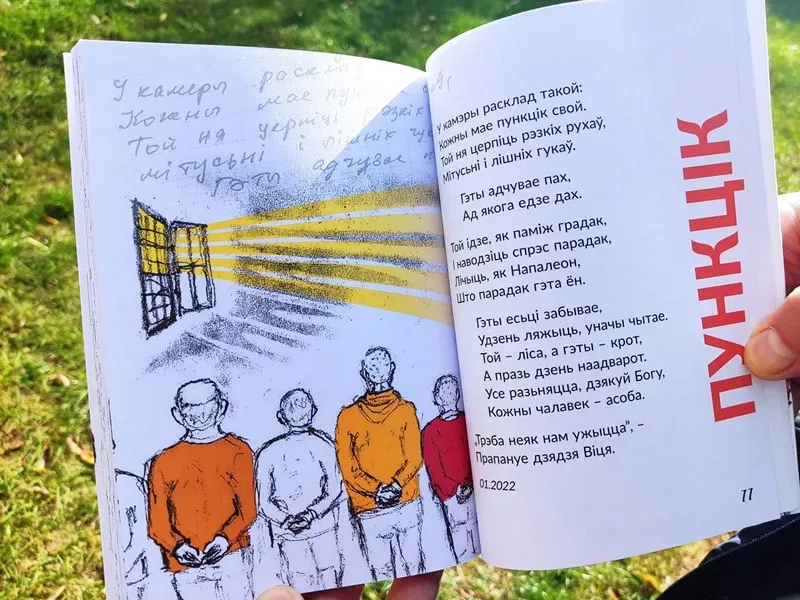 У камеры раскла
Кожны мае пун
Той ня церпіць рэзкіх
мітусьні і лішніх гу
гэты адчувае п
У камэры расклад такой:
Кожны мае пункцік свой.
Той ня церпіць рэзкіх рухаў,
Мітусьні і лішніх гукаў.
Гэты адчувае пах,
Ад якога едзе дах.
Той ідзе, як паміж градак,
І наводзіць спрэс парадак,
Лічыць, як Напалеон,
Што парадак гэта ён.
Гэты есьці забывае,
Удзень ляжыць, уначы чытае.
Той – ліса, а гэты – крот,
А празь дзень наадварот.
Усе разьняцца, дзякуй Богу,
Кожны чалавек – асоба.
„Трэба неяк нам ужыцца”, –
Прапануе дзядзя Віця.
01.2022
ПУНКЦІК
77